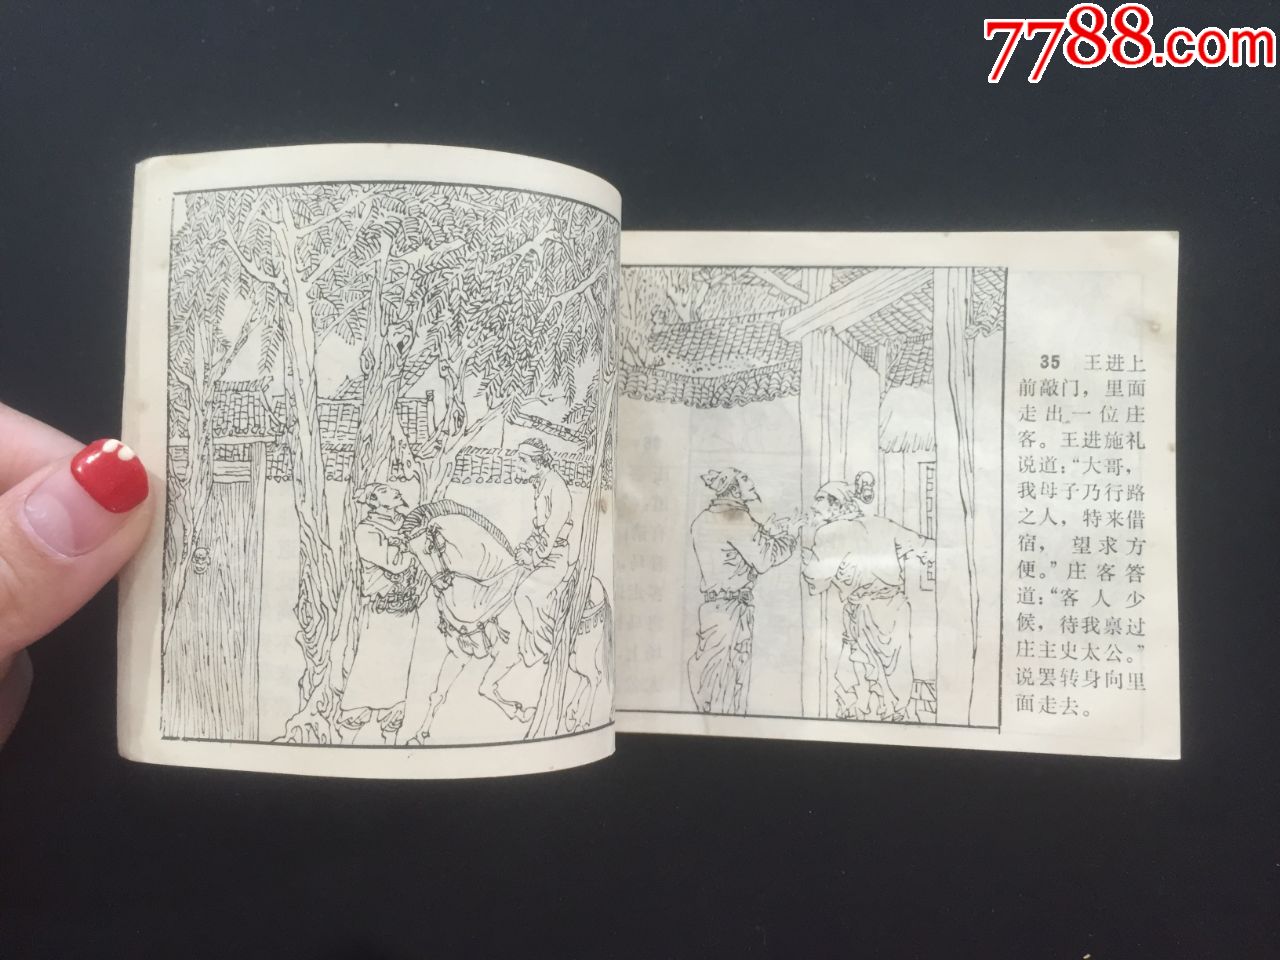 7788.com
35 王进上
前敲门，里面
走出一位庄
客。王进施礼
说道：“大哥，
我母子乃行路
之人，特来借
宿，望求方
便。”庄客答
道：“客人少
候，待我禀过
庄主史太公。”
说罢转身向里
面走去。